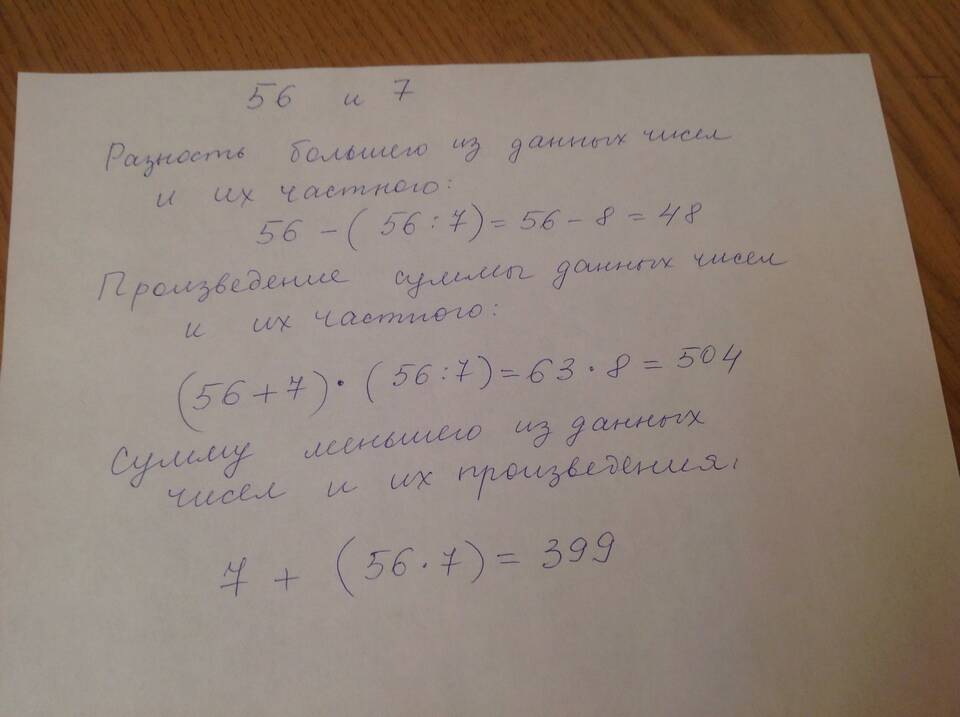 56 и 7
Разность большего из данных чисел
и их частного:
56 - ( 56 : 7 ) = 56 - 8 = 48
Произведение суммы данных чисел
и их частного:
(56 + 7) · ( 56 : 7 ) = 63 · 8 = 504
Сумму меньшего из данных
чисел и их произведения,
7 + (56 · 7) = 399